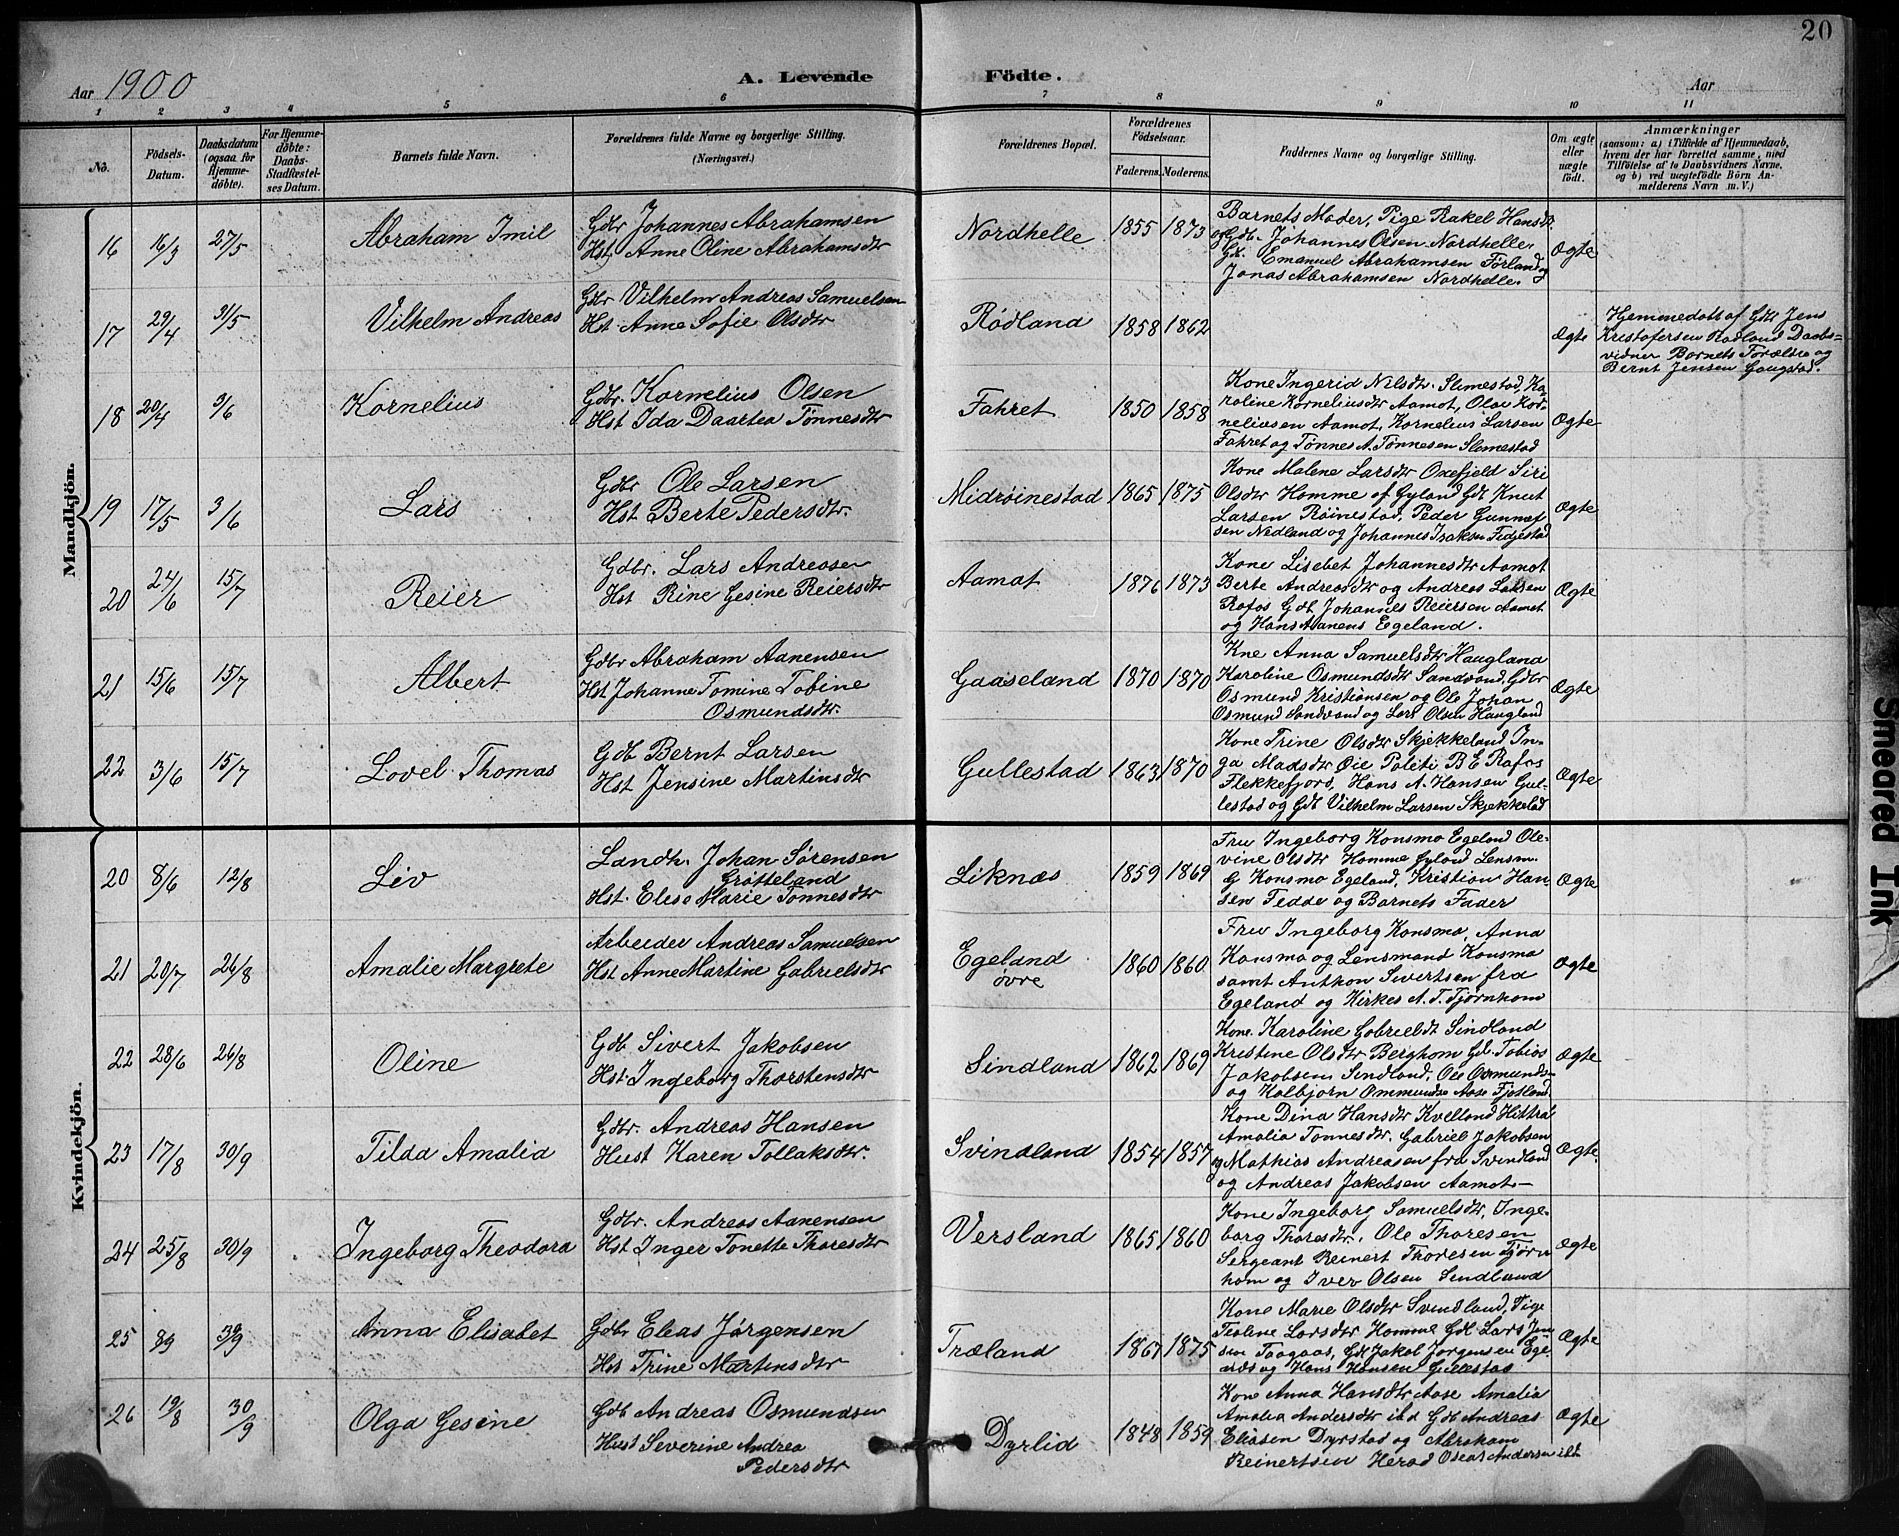 20
Aar 1900
A. Levende Födte.
Aar
1 2 3 4 5 6 7 8 9 10 11
No.
Födsels-Datum.
Daabsdatum (ogsaa for Hjemme-döbte).
For Hjemme-döbte: Daabs-Stadfæstel-ses Datum.
Barnets fulde Navn.
Forældrenes fulde Navne og borgerlige Stilling. (Næringsvei.)
Forældrenes Bopæl.
Forældrenes Födselsaar.
Faderens. Moderens.
Faddernes Navne og borgerlige Stilling.
Om ægte eller uægte födt.
Anmærkninger
(saasom: a) i Tilfælde af Hjemmedaab, hvem der har forrettet samme, med Tilföielse af to Daabsvidners Navne, og b) ved uægtefödte Börn An-melderens Navn m. V.)
Mandkjön.
16 16/3 27/5 Abraham Imil
Gdbr Johannes Abrahamsen
Hst. Anne Oline Abrahamsdtr
Nordhelle 1855 1873
Barnets Moder, Pige Rakel Hansd.
og Gdb. Johannes Olsen Nordhelle.
Gk. Emanuel Abrahamsen Førland og
Jonas Abrahamsen Nordhelle.
Ægte
17 29/4 31/5 Vilhelm Andreas
Gdbr Vilhelm Andreas Samuelsen
Hst. Anne Sofie Olsdtr
Rødland 1858 1862
Ægte
Hjemmedøbt af Gdb Jens
Kristofersen Rødland Daabs-
vidner Barnets Forældre og
Bernt Jensen Gaugstad.
18 20/4 3/6 Kornelius
Gdbr. Kornelius Olsen
Hst Ida Daartea Tønnesdtr
Fahret 1850 1858
Kone Ingerid Nilsdtr. Slimestad, Ka-
roline Korneliusdtr Aamot, Olav Kor-
neliusen Aamot, Kornelius Larsen
Fahret og Tønnes A. Tønnesen Slimestad
Ægte
19 17/5 3/6 Lars
Gdbr Ole Larsen
Hst Berte Pedersdtr.
Midrøinestad 1865 1875
Kone Malene Larsdtr Oxefjeld Siri
Olsdtr Homme af Gyland Gdb Knut
Larsen Røinestad, Peder Gunnuf-
sen Nedland og Johannes Isaksen Fedjestad
Ægte
20 24/6 15/7 Reier
Gdbr. Lars Andreasen
Hst Rine Gesine Reiersdtr
Aamot 1876 1873
Kone Lisebet Johannesdtr Aamot
Berte Andreasdtr og Andreas Larsen
Rafos Gdb Johannes Reiersen Aamot
og Hans Aanens Egeland.
Ægte
21 15/6 15/7 Albert
Gdbr Abraham Aanensen
Hst Johanne Tomine Tobine
Osmundsdtr.
Gaaseland 1870 1870
Kne Anna Samuelsdtr Haugland
Karoline Osmundsdtr Sandvand, Gdbr
Osmund Kristiansen og Ole Johan
Osmund Sandvand og Lars Olsen Haugland
Ægte
22 3/6 15/7 Lovel Thomas
Gdb Bernt Larsen
Hst Jensine Martinsdtr
Gullestad 1863 1870
Kone Trine Olsdtr Skjekkeland In-
ga Madsdtr Øie Politi B E Rafos
Flekkefjord, Hans A. Hansen Gul-
lestad og Gdb Vilhelm Larsen Skjekkelad
Ægte
Kvindekjön.
20 8/6 12/8 Liv
Landh. Johan Sørensen
Grøtteland
Hst. Elise Marie Tønnesdtr
Liknæs 1859 1869
Fru Ingeborg Konsmo Egeland Ole-
vine Olsdtr Homme Gyland Lensm.
G Konsmo Egeland, Kristian Han-
sen Fedde og Barnets Fader
Ægte
21 20/7 26/8 Amalie Margrete
Arbeider Andreas Samuelsen
Hst Anne Martine Gabrielsdtr
Egeland
øvre
1860 1860
Fru Ingeborg Konsmo, Anna
Konsmo og Lensmand Konsmo
samt Anthon Sivertsen fra
Egeland og Kirkes A. T. Tjørnhom
Ægte
22 28/6 26/8 Oline
Gdb Sivert Jakobsen
Hst. Ingeborg Thorstensdtr
Sindland 1862 1869
Kone. Karoline Gabrieldt Sindland
Kristine Olsdtr Berghom Gdb. Tobias
Jakobsen Sindland. Ole Osmunds-
og Kolbjørn Ommundse Aase Fjotland
Ægte
23 17/8 30/9 Tilda Amalia
Gdbr. Andreas Hansen
Hust Karen Tollaksdtr.
Svindland 1854 1857
Kone Dina Hansdtr Kvelland Hittra
Amalia Tønnesdtr. Gabriel Jakobsen
og Mathias Andreasen fra Svindland
og Andreas Jakobsen Aamot
Ægte
24 25/8 30/9 Ingeborg Theodora
Gdbr. Andreas Aanensen
Hst Inger Tonette Thoresdtr
Versland 1865 1860
Kone Ingeborg Samuelsdtr, Inge-
borg Thoresdtr. Ole Thoresen
Sergeant Reinert Thoresen Tjørn
hom og Iver Olsen Sindland
Ægte
25 8/9 30/9 Anna Elisabet
Gdbr Elias Jørgensen
Hst Trine Martinsdtr
Træland 1867 1875
Kone Marie Olsdtr Svindland, Pige
Teoline Larsdtr Homme Gdb Lars Jen-
sen Taagaas, Gdb Jakob Jørgensen Ege-
og Hans Hansen Gullestad
Ægte
26 19/8 30/9 Olga Gesine
Gdb Andreas Osmundsen
Hust Severine Andrea
Pedersdtr
Dyrlid 1848 1859
Kone Anna Hansdtr Aase Amalia
Amalia Andersdtr ibd Gdb Andreas
Eliasen Dyrstad og Abraham
Reinertsen Herad Oscar Andersen ibd
Ægte
Smeared Ink